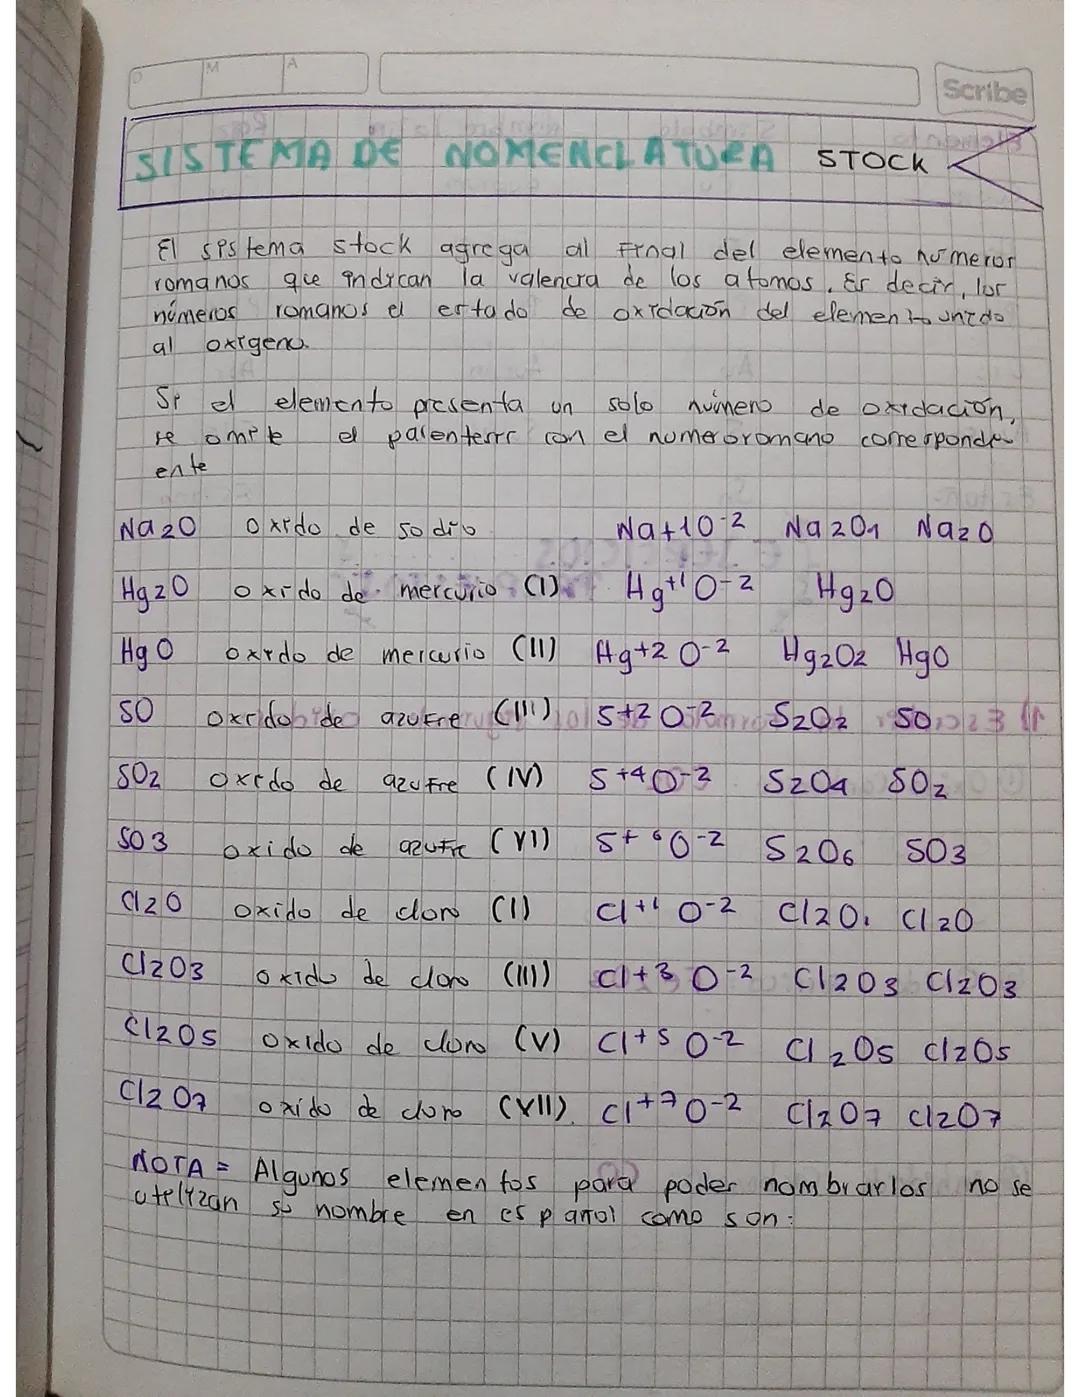 D M A
Scribe
SISTEMA DE NOMENCLATURA STOCK
El sistema stock agrega al final del elemento números
romanos que indican la valencia de los atomos. Es decir, los
números romanos el estado de oxidación del elemento unido
al oxigeno.
Si el elemento presenta un solo número de oxidación,
se omite el parentesis con el numero romano correspondi-
ente
Na2O oxido de sodio Na+1O-2 Na2O1 Na2O
Hg2O oxido de mercurio (I) Hg+1O-2 Hg2O
HgO oxido de mercurio (II) Hg+2O-2 Hg2O2 HgO
SO oxido de azufre (III) S+2O-2 S2O2 SO
SO2 oxido de azufre (IV) S+4O-2 S2O4 SO2
SO3 oxido de azufre (VI) S+6O-2 S2O6 SO3
Cl2O oxido de cloro (I) Cl+1O-2 Cl2O1 Cl2O
Cl2O3 oxido de cloro (III) Cl+3O-2 Cl2O3 Cl2O3
Cl2O5 oxido de cloro (V) Cl+5O-2 Cl2O5 Cl2O5
Cl2O7 oxido de cloro (VII). Cl+7O-2 Cl2O7 Cl2O7
NOTA= Algunos elementos para poder nombrarlos no se
utilizan su nombre en español como son: